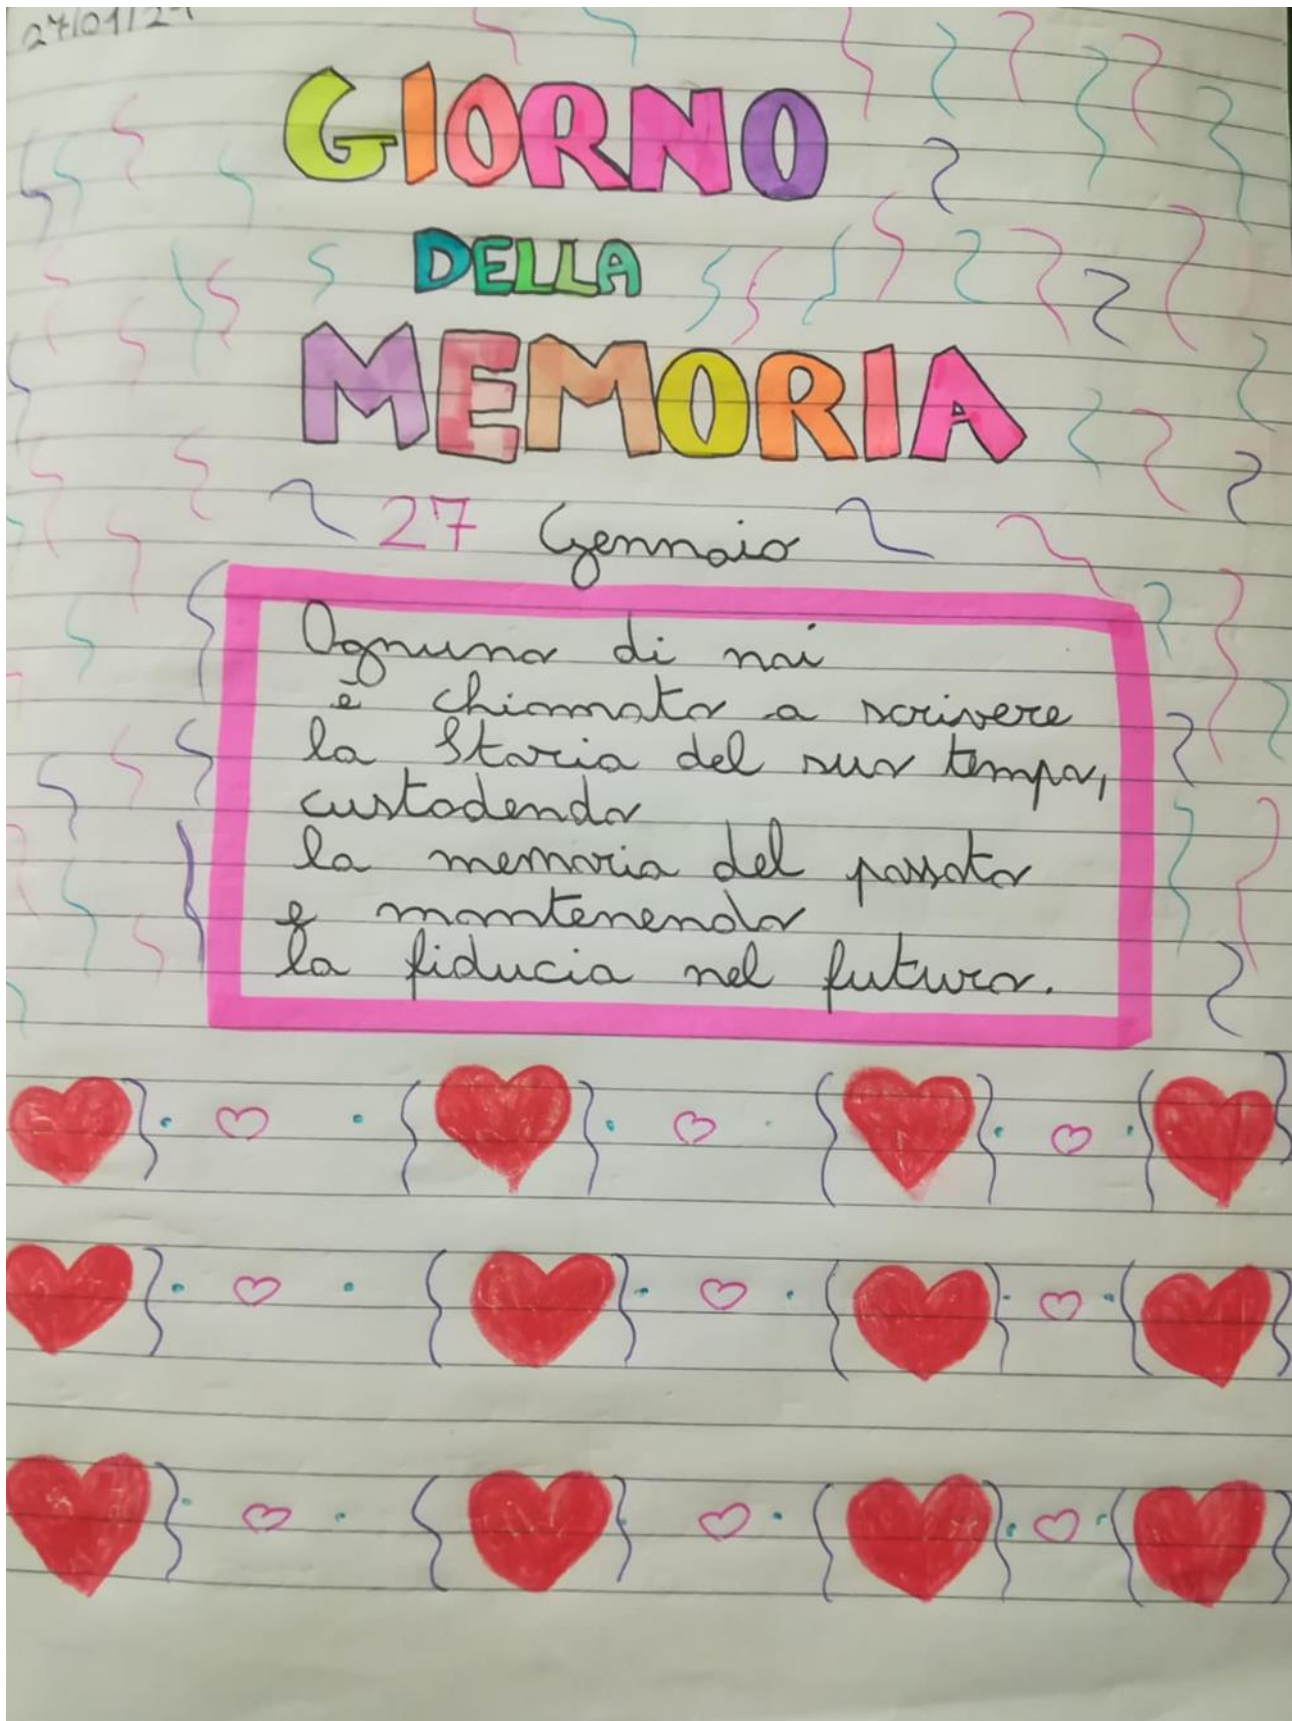 27/01/21
GIORNO
DELLA
MEMORIA
27 Gennaio
Ognuno di noi
è chiamato a scrivere
la Storia del suo tempo,
custodendo
la memoria del passato
e mantenendo
la fiducia nel futuro.